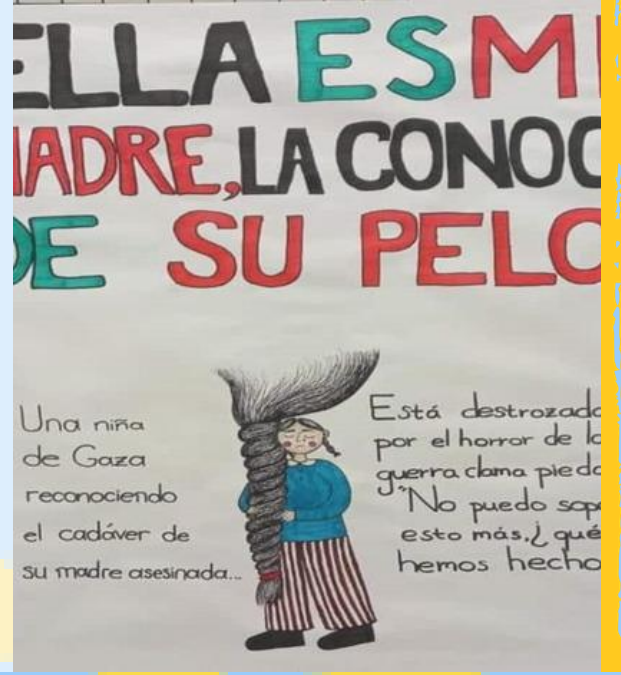 ELLA ES MI
MADRE, LA CONOC
DE SU PELO
Una niña
de Gaza
reconociendo
el cadáver de
su madre asesinada...
Está destrozada
por el horror de la
guerra clama pieda
"No puedo sopo
esto más.¿qué
hemos hecho